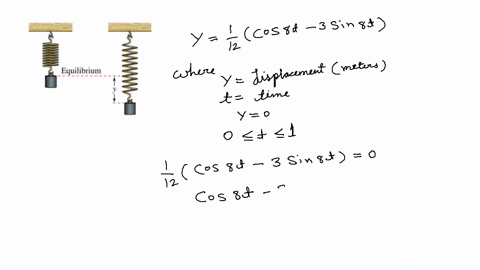 Equilibrium
y
Y = 1/12 (Cos 8t - 3 Sin 8t)
where Y = displacement (meters)
t = time
Y = 0
0 ≤ t ≤ 1
1/12 (Cos 8t - 3 Sin 8t) = 0
Cos 8t -